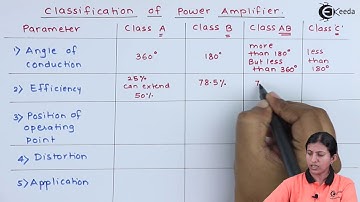 Classification of Power Amplifier.
Ekeeda
Parameter
Class A
Class B
Class AB
Class C
1) Angle of conduction
360°
180°
more than 180° But less than 360°
less than 180°
2) Efficiency
25% can extend 50%
78.5%
3) Position of operating point
4) Distortion
5) Application